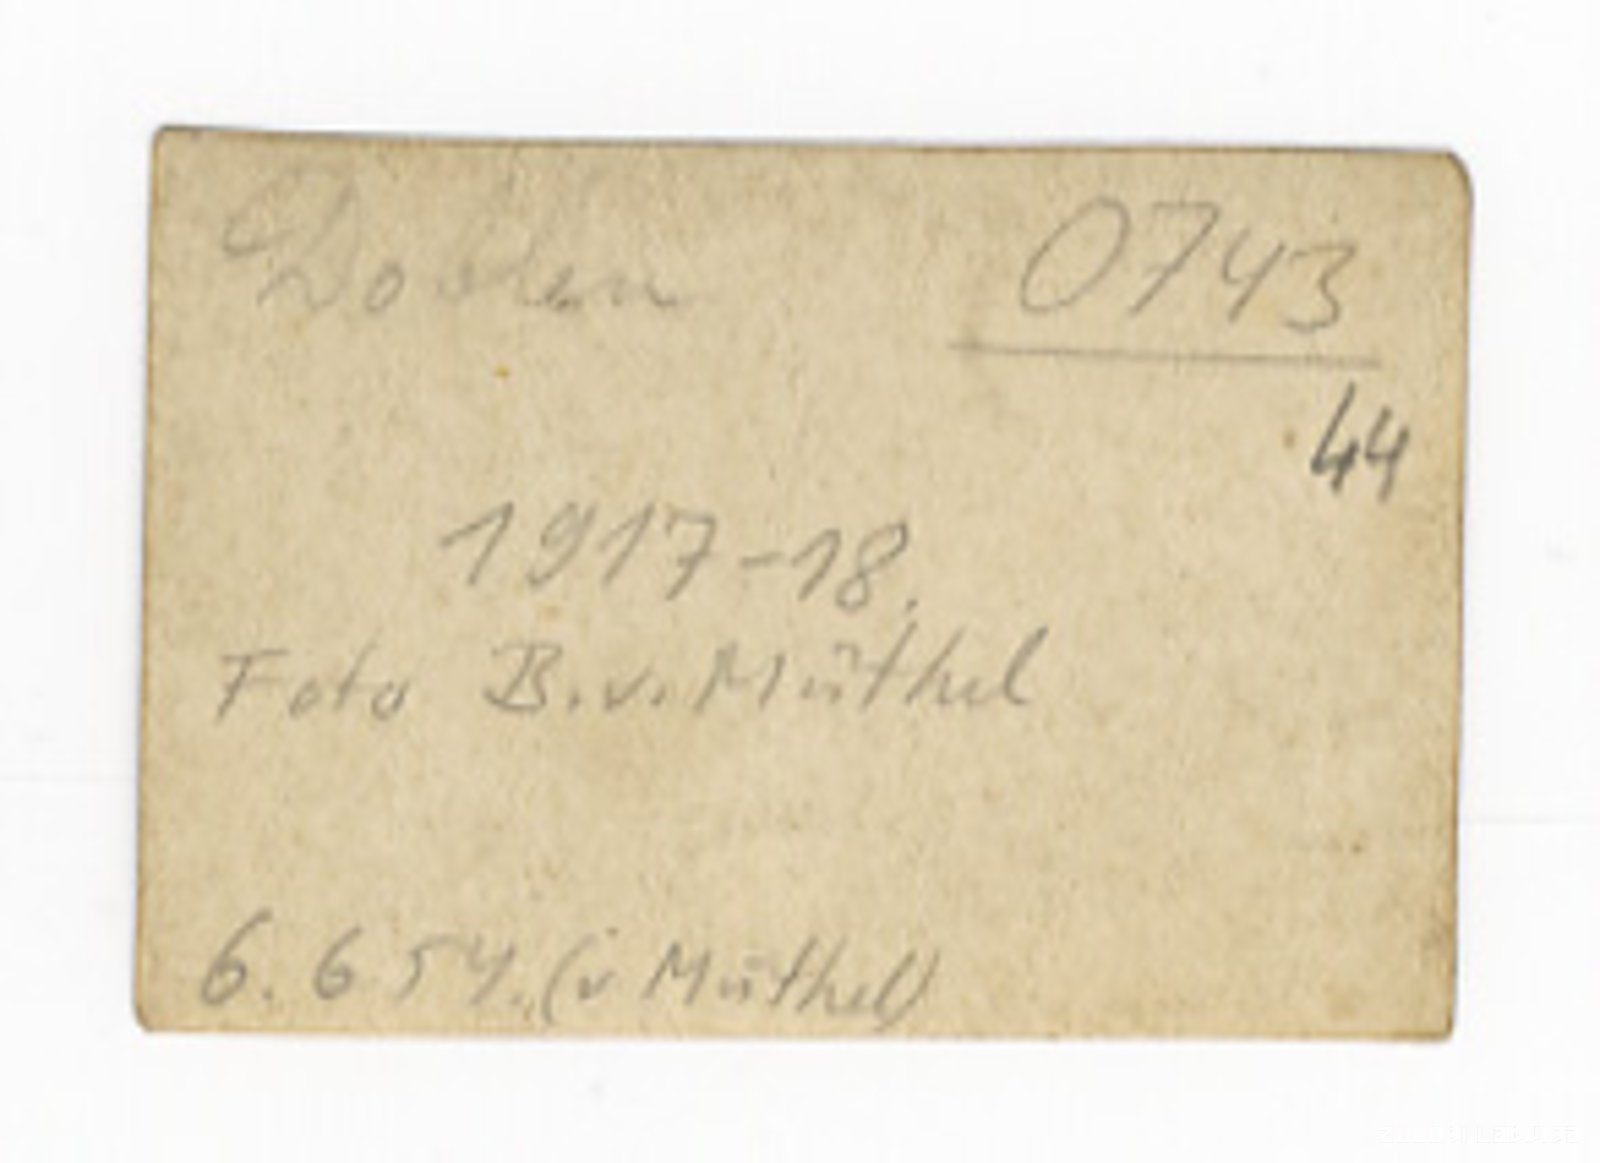 Doblen 0743
44
1917-18.
Foto B.v. Müthel
6.6.54. (v Müthel)